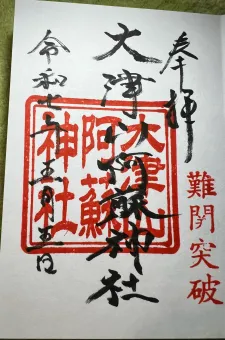 奉拝
難関突破
大津阿蘇神社
大津阿蘇神社
令和七年五月五日